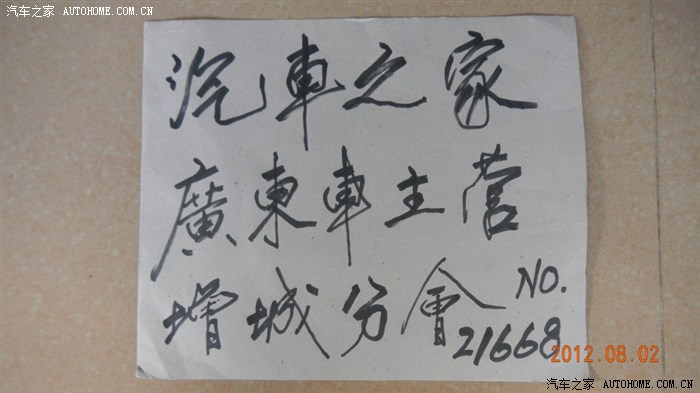 汽车之家 AUTOHOME.COM.CN
汽車之家
廣東車主营
增城分會 NO.
21668
2012.08.02
汽车之家 AUTOHOME.COM.CN